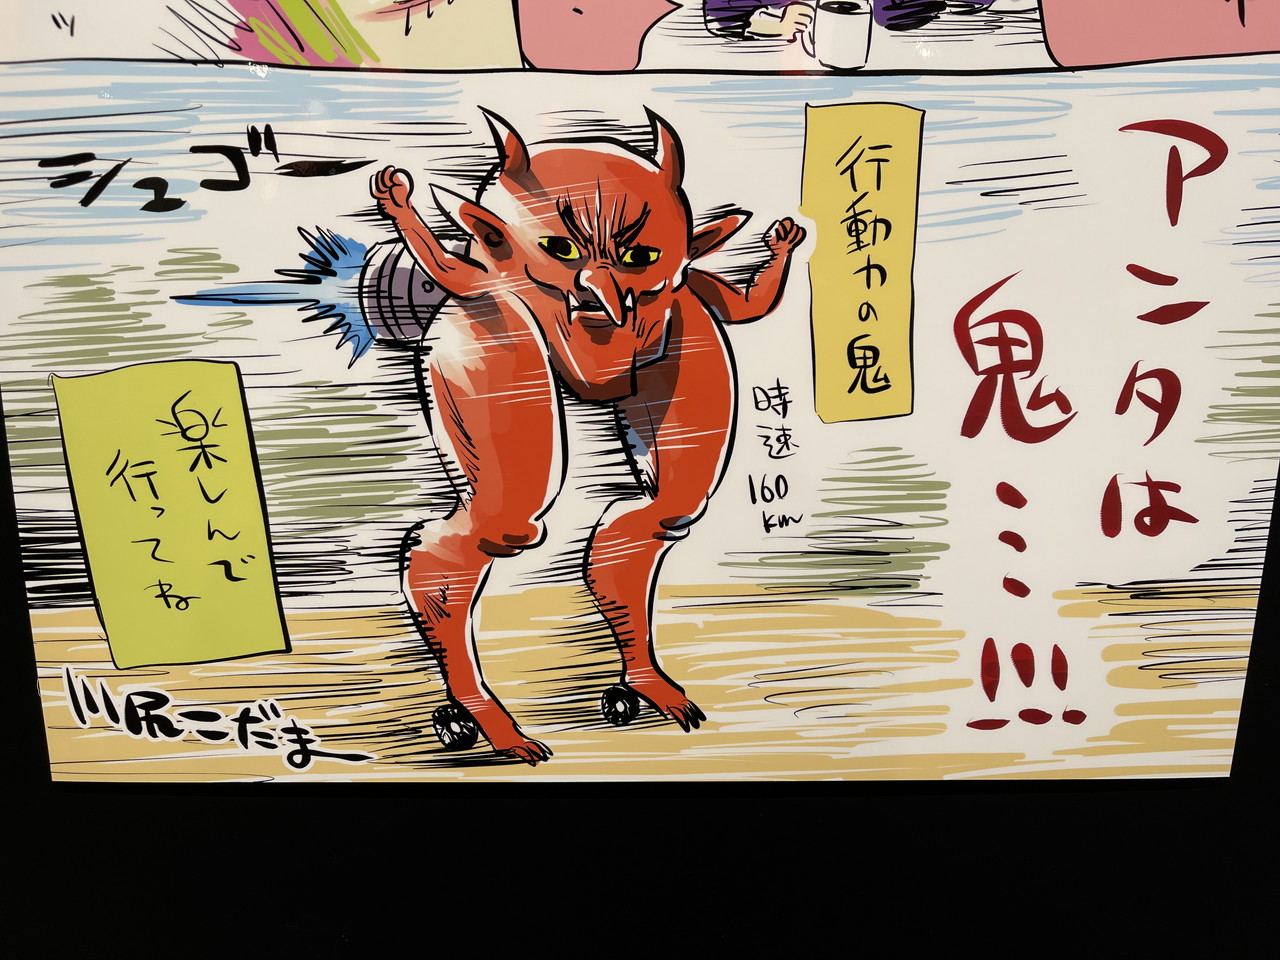 アンタは
鬼……!!!
行動力の鬼
時速
160
km
シュゴー
楽しんで
行ってね
川尻こだま